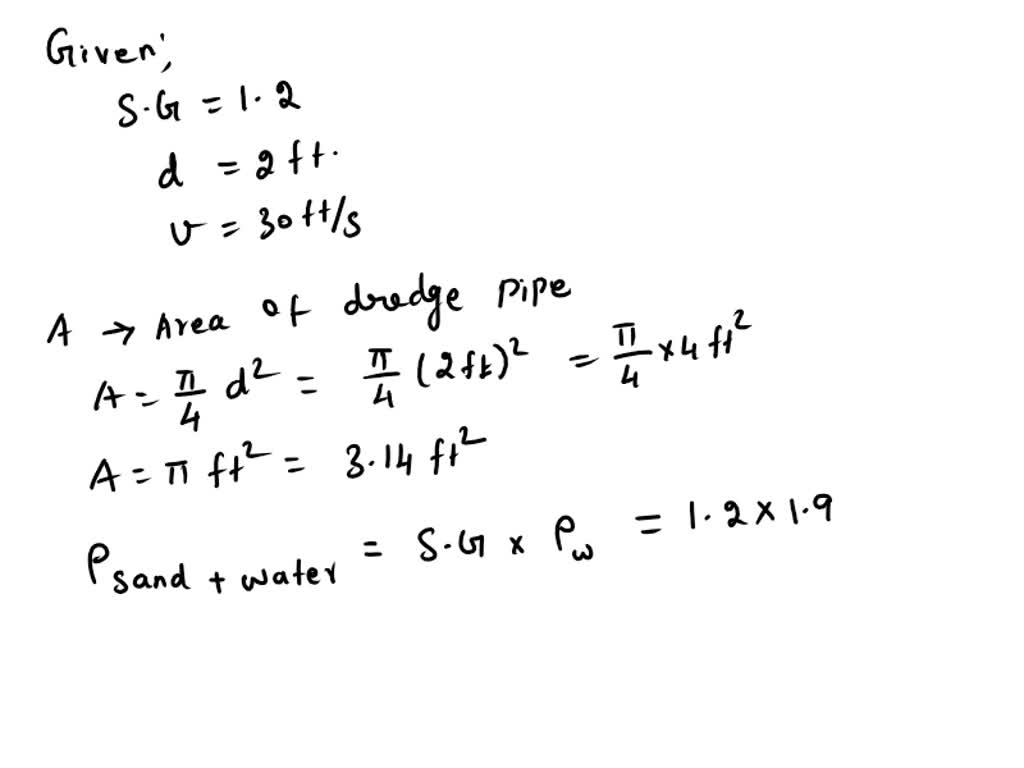 Given;
S.G = 1.2
d = 2 ft.
v = 30 ft/s
A → Area of dredge pipe
A = π/4 d² = π/4 (2ft)² = π/4 × 4 ft²
A = π ft² = 3.14 ft²
ρ sand + water = S.G × ρw = 1.2 × 1.9